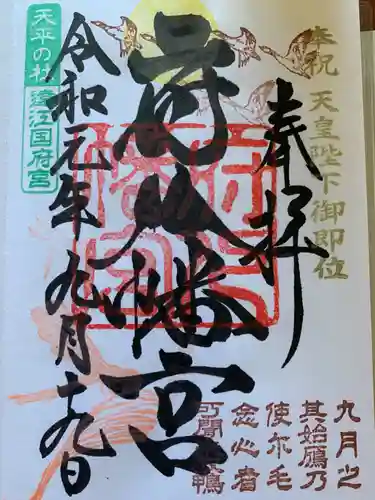 奉祝 天皇陛下御即位
奉拝
府八幡宮
令和元年九月十九日
天平の杜
遠江国府宮
府八幡宮
九月之
其始鴈乃
使尓毛
念心者
可聞来奴鴨